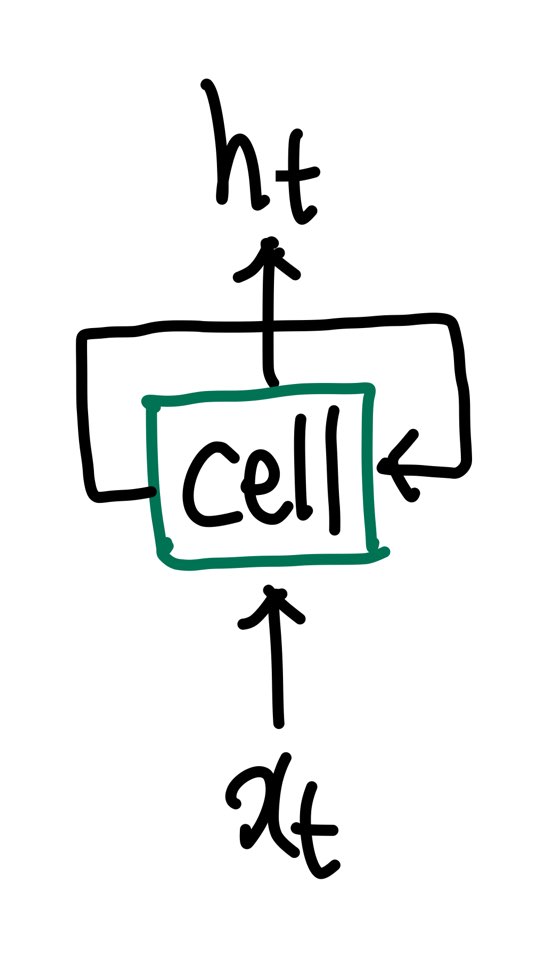 hₜ
cell
xₜ